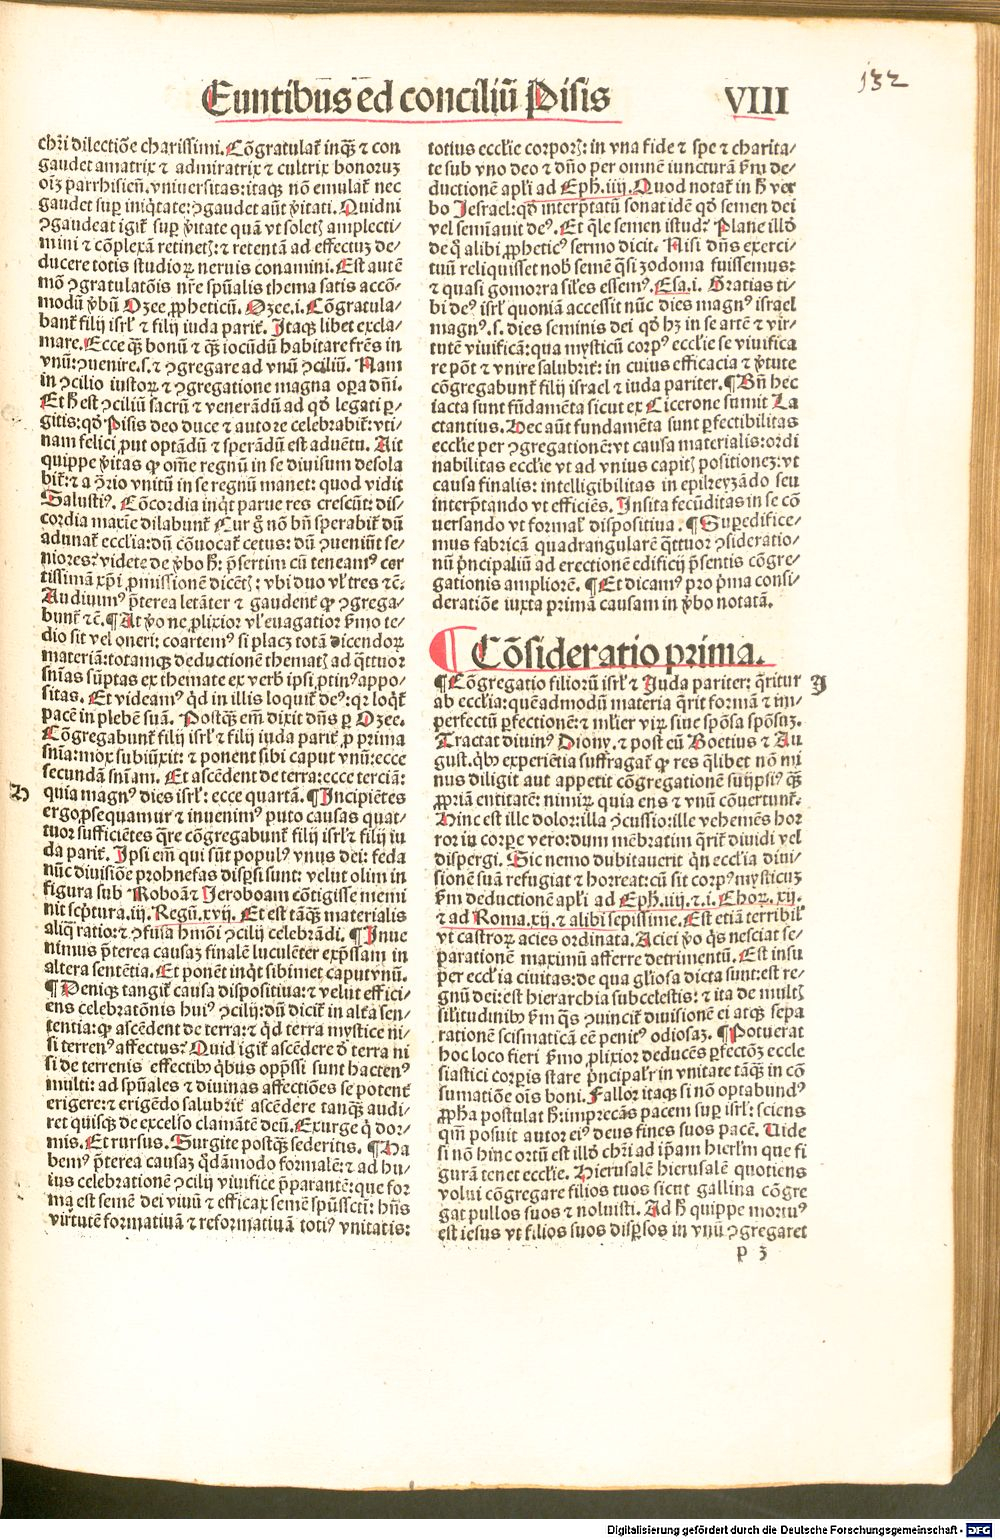 132
Euntibus ed conciliū Pisis VIII
chr̄i dilectiōe charissimi. Cōgratulat᷑ inq̄ꝫ ⁊ con
gaudet amatrix ⁊ admiratrix ⁊ cultrix bonoruꝫ
oīꝫ parrhisieñ. vniuersitas: itaqꝫ nō emulat᷑ nec
gaudet sup iniq̄tate: ꝯgaudet aūt v̄itati. Quidni
ꝯgaudeat igit᷑ sup v̄itate quā vt soletꝭ amplecti-
mini ⁊ cōplexā retinetꝭ: ⁊ retentā ad effectuꝫ de-
ducere totis studioꝝ neruis conamini. Est autē
mō ꝯgratulatōis nr̄e spūalis thema satis accō-
modū v̄bū Ozee ꝓpheticū. Ozee.i. Cōgratula-
bunt᷑ filij isrl̄ ⁊ filij iuda parit᷑. Itaqꝫ libet excla-
mare. Ecce q̄ꝫ bonū ⁊ q̄ꝫ iocūdū habitare fr̄es in
vnū: ꝯuenire .s. ⁊ ꝯgregare ad vnū ꝯciliū. Nam
in ꝯcilio iustoꝝ ⁊ ꝯgregatione magna opa dn̄i.
Et h̄ est ꝯciliū sacrū ⁊ venerādū ad qd̄ legati ꝑ-
gitis: qd̄ Pisis deo duce ⁊ autore celebrabit᷑: vti-
nam felici ꝓut optādū ⁊ sperādū est aduētu. Ait
quippe v̄itas ꝙ om̄e regnū in se diuisum desola
bit᷑: ⁊ a ꝯ̄rio vnitū in se regnū manet: quod vidit
Salustiꝰ. Cōcordia inq̄t parue res crescūt: dis-
cordia maxīe dilabunt᷑ Cur gͦ nō bn̄ sperabit᷑ dū
adunat᷑ ecclīa: dū cōuocat᷑ cetus: dū ꝯueniūt se-
niores? videte de v̄bo h̄: p̄sertim cū teneamꝰ cer
tissimā xp̄i ꝓmissionē dicētꝭ: vbi duo vl̄ tres ⁊c̄.
Audiuimꝰ p̄terea letāter ⁊ gaudent᷑ ꝙ ꝯgrega-
bunt᷑ ⁊c̄. ¶ At v̄o ne ꝓlixior vl̄ euagatior sm̄o te-
dio sit vel oneri: coartemꝰ si placꝫ totā dicendoꝝ
materiā: totamqꝫ deductionē thematꝭ ad q̄ttuor
sn̄ias sūptas ex themate ex verb ipsi ꝓtinꝰ appo-
sitas. Et videamꝰ qd̄ in illis loquit᷑ deꝰ: qꝛ loq̄t᷑
pacē in plebē suā. Postq̄ꝫ em̄ dixit dn̄s ꝑ Ozee.
Cōgregabunt᷑ filij isrl̄ ⁊ filij iuda parit᷑ ꝓ prima
sn̄ia: mox subiūxit: ⁊ ponent sibi caput vnū: ecce
secundā sn̄iam. Et ascēdent de terra: ecce terciā:
quia magnꝰ dies isrl̄: ecce quartā. ¶ Incipiētes
ergo ꝓsequamur ⁊ inuenimꝰ puto causas quat-
tuor sufficiētes q̄re cōgregabunt᷑ filij isrl̄ ⁊ filij iu
da parit᷑. Ipsi em̄ qui sūt populꝰ vnus dei: feda
nūc diuisiōe proh nefas disꝑsi sunt: velut olim in
figura sub Roboā ⁊ Ieroboam cōtigisse memi
nit scptura .iii. Regū. xvij. Et est tāq̄ꝫ materialis
aliq̄ ratio: ⁊ ꝯfusa hmōi ꝯcilij celebrādi. ¶ Inue
nimus p̄terea causaꝫ finalē luculēter exp̄ssam in
altera sentētia. Et ponēt inq̄t sibimet caput vnū.
¶ Deniqꝫ tangit᷑ causa dispositiua: ⁊ velut effici-
ens celebratōnis huiꝰ ꝯcilij: dū dicit᷑ in alt᷑a sen-
tentia: ꝙ ascēdent de terra: ⁊ qd̄ terra mystice ni-
si terrenꝰ affectus? Quid igit᷑ ascēdere d̄ terra ni
si de terrenis effectibꝫ q̄bus opp̄ssi sunt hactenꝰ
multi: ad spūales ⁊ diuinas affectiōes se potent᷑
erigere: ⁊ erigēdo salubrit᷑ ascēdere tanq̄ꝫ audi-
ret quisqꝫ de excelso clamātē deū. Exurge q̄ dor-
mis. Et rursus. Surgite postq̄ꝫ sederitis. ¶ Ha
bemꝰ p̄terea causaꝫ q̄dāmodo formalē: ⁊ ad hu-
ius celebrationē ꝯcilij viuifice p̄parantē: que for
ma est semē dei viuū ⁊ efficax semē spūssctī: hn̄s
virtutē formatiuā ⁊ reformatiuā totiꝰ vnitatis:
totius ecclīe corporꝭ: in vna fide ⁊ spe ⁊ charita-
te sub vno deo ⁊ dn̄o per omnē iuncturā sm̄ de-
ductionē apl̄i ad Eph̄. iiij. Quod notat᷑ in h̄ ver
bo Iesrael: qd̄ interp̄tatū sonat idē qd̄ semen dei
vel semīauit deꝰ. Et q̄le semen istud? Plane illd̄
de q̄ alibi ꝓpheticꝰ sermo dicit. Nisi dn̄s exerci-
tuū reliquisset nob̄ semē q̄si zodoma fuissemus:
⁊ quasi gomorra sil̄es essemꝰ. Esa. i. Gratias ti-
bi deꝰ isrl̄ quoniā accessit nūc dies magnꝰ israel
magnꝰ .s. dies seminis dei qd̄ hꝫ in se artē ⁊ vir-
tutē viuificā: qua mysticū corpꝰ ecclīe se viuifica
re pōt ⁊ vnire salubrit᷑: in cuius efficacia ⁊ v̄tute
cōgregabunt᷑ filij israel ⁊ iuda pariter. ¶ Bn̄ hec
iacta sunt fūdamēta sicut ex Cicerone sumit La
ctantius. Hec aūt fundamēta sunt ꝑfectibilitas
ecclīe per ꝯgregationē: vt causa materialis: ordi
nabilitas ecclīe vt ad vnius capitꝭ positioneꝫ: vt
causa finalis: intelligibilitas in epikeyzādo seu
interp̄tando vt efficiēs. Insita fecūditas in se cō
uersando vt formal᷑ dispositiua. ¶ Supedifice-
mus fabricā quadrangularē q̄ttuor ꝯsideratio-
nū p̄ncipaliū ad erectionē edificij p̄sentis cōgre-
gationis ampliorē. ¶ Et dicamꝰ pro p̄ma consi-
deratiōe iuxta primā causam in v̄bo notatā.
¶ Cōsideratio prima.
¶ Cōgregatio filiorū isrl̄ ⁊ Iuda pariter: q̄ritur
ab ecclīa: quēadmodū materia q̄rit formā ⁊ im-
perfectū ꝑfectionē: ⁊ ml̄ier virꝝ siue spōsa spōsuꝫ.
Tractat diuinꝰ Diony. ⁊ post eū Boetius ⁊ Au
gust. q̄bꝫ experiētia suffragat᷑ ꝙ res q̄libet nō mi
nus diligit aut appetit cōgregationē suijpsiꝰ q̄ꝫ
ꝓpriā entitatē: nimiꝝ quia ens ⁊ vnū cōuertunt᷑.
Hinc est ille dolor: illa ꝯcussio: ille vehemēs hor
ror in corpe vero: dum mēbratim q̄rit᷑ diuidi vel
dispergi. Sic nemo dubitauerit qn̄ ecclīa diui-
sionē suā refugiat ⁊ horreat: cū sit corpꝰ mysticuꝫ
sm̄ deductionē apl̄i ad Eph̄. iiij. ⁊ .i. Choꝝ. xij.
⁊ ad Roma. xij. ⁊ alibi sepissime. Est etiā terribil᷑
vt castroꝝ acies ordinata. Aciei v̄o q̄s nesciat se-
parationē maximū afferre detrimentū. Est insu
per ecclīa ciuitas: de qua gl̄iosa dicta sunt: est re-
gnū dei: est hierarchia subcelestis: ⁊ ita de multꝭ
sil̄itudinibꝫ sm̄ q̄s ꝯuincit᷑ diuisionē ei atqꝫ sepa
rationē scismaticā eē penitꝰ odiosaꝫ. ¶ Potuerat
hoc loco fieri sm̄o ꝓlixior deducēs ꝑfectōꝫ eccle
siastici corpis stare p̄ncipal᷑r in vnitate tāq̄ꝫ in cō
sumatiōe oīs boni. Fallor itaqꝫ si nō optabundꝰ
ꝓph̄a postulat h̄: imprecās pacem sup isrl̄: sciens
qm̄ posuit autor eiꝰ deus fines suos pacē. Uide
si nō hinc ortū est illd̄ chr̄i ad ip̄am hierl̄m que fi
gurā tenet ecclīe. Hierusalē hierusalē quotiens
volui cōgregare filios tuos sicut gallina cōgre
gat pullos suos ⁊ noluisti. Ad h̄ quippe mortuꝰ
est iesus vt filios suos disꝑsos in vnū ꝯgregaret
p 3
Digitalisierung gefördert durch die Deutsche Forschungsgemeinschaft - DFG